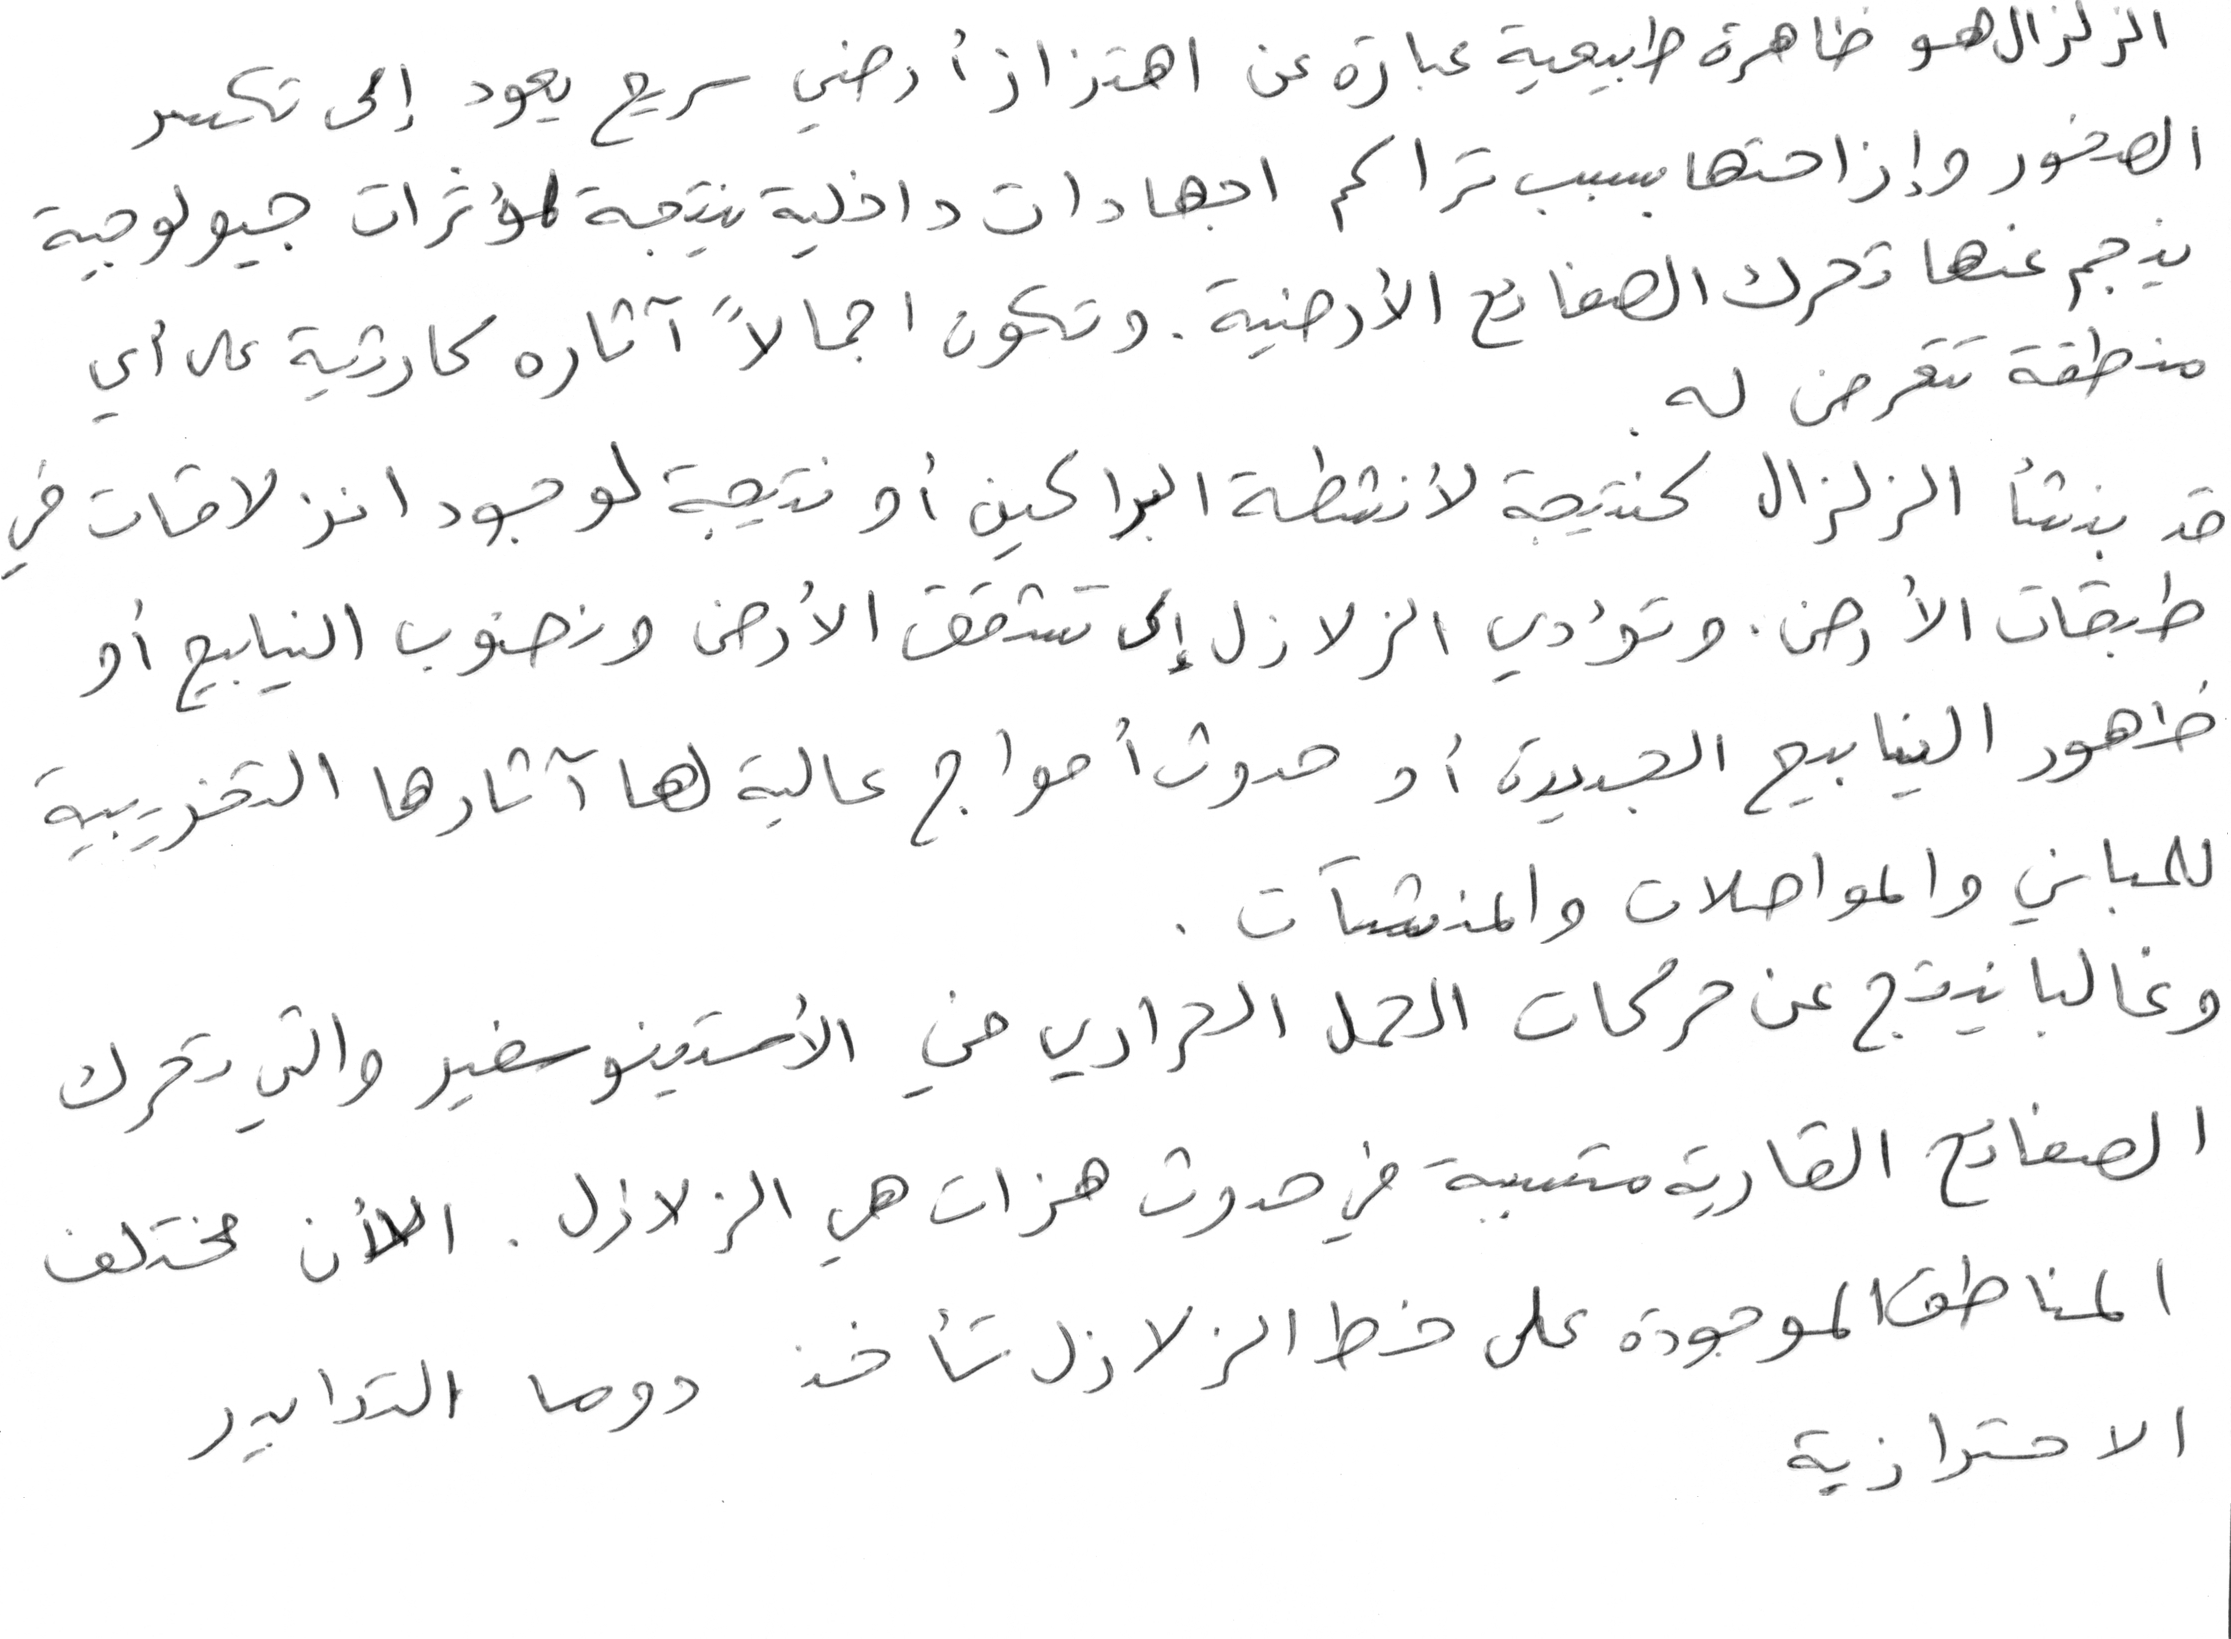 الزلزال هو ظاهرة طبيعية عبارة عن اهتزاز أرضي سريع يعود إلى تكسر
الصخور وإزاحتها بسبب تراكم اجهادات داخلية نتيجة لمؤثرات جيولوجية
ينجم عنها تحرك الصفائح الأرضية. وتكون اجمالاً آثاره كارثية على أي
منطقة تتعرض له.
قد ينشأ الزلزال كنتيجة لأنشطة البراكين أو نتيجة لوجود انزلاقات في
طبقات الأرض. وتؤدي الزلازل إلى تشقق الأرض ونضوب الينابيع أو
ظهور الينابيع الجديدة أو حدوث أمواج عالية لها آثارها التخريبية
للمباني والمواصلات والمنشآت.
وغالبا ينتج عن حركات الحمل الحراري في الأستينوسفير والتي تحرك
الصفائح القارية متسببة في حدوث هزات هي الزلازل. الأن مختلف
المناطق الموجودة على خط الزلازل تأخذ دوما التدابير
الاحترازية